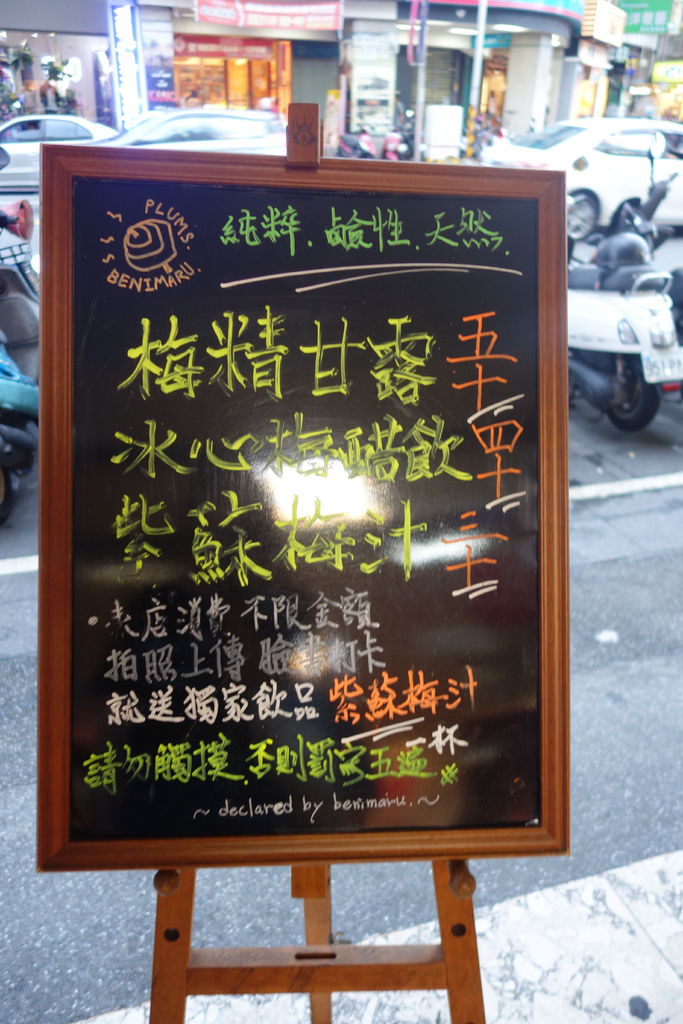 PLUMS.
BENIMARU.
純粹.鹼性.天然.
梅精甘露 五十
冰心梅醋飲 四十
紫蘇梅汁 三十
•來店消費不限金額
拍照上傳臉書打卡
就送獨家飲品紫蘇梅汁
一杯
請勿觸摸.否則罰寫五遍※
~declared by benimaru.~